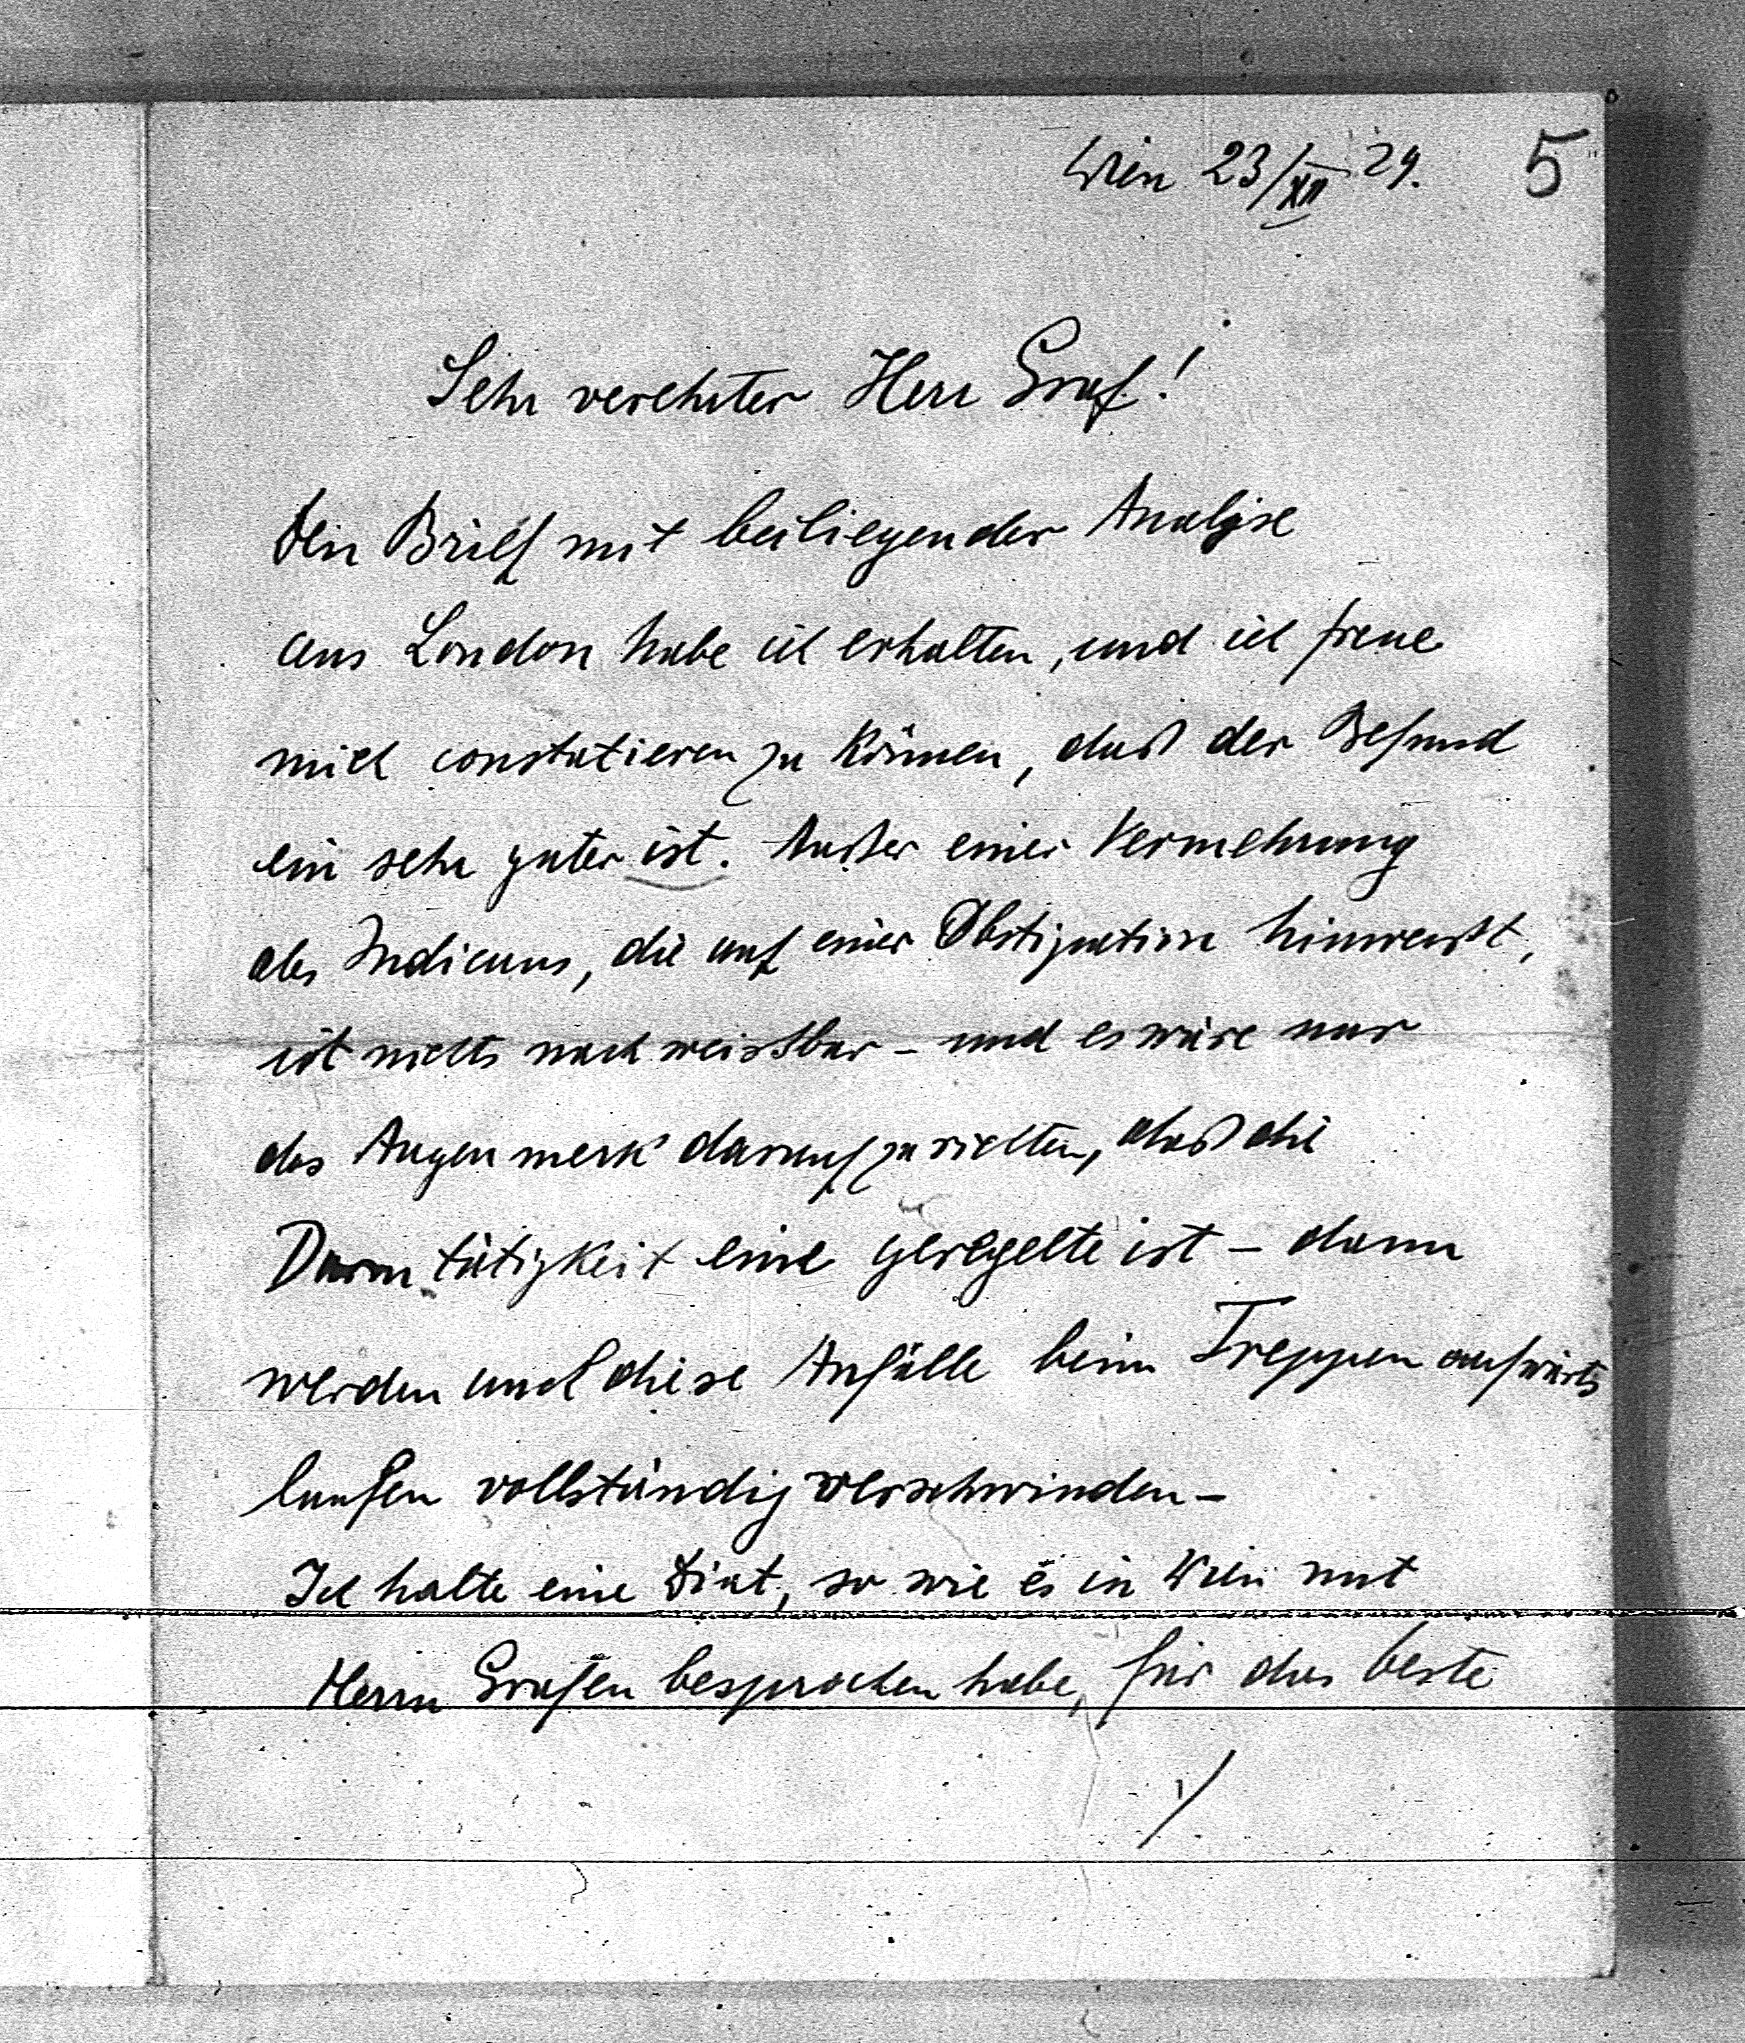 Wien 23/XII 29. 5
Sehr verehrter Herr Graf!
Den Brief mit beiliegender Analyse
aus London habe ich erhalten, und ich freue
mich constatieren zu können, daß der Befund
ein sehr guter ist. Außer einer Vermehrung
des Indicans, die auf einer Obstipation hinweist,
ist nichts nachweisbar - und es wäre nur
das Augenmerk darauf zu richten, daß die
Darmtätigkeit eine geregelte ist - dann
werden auch diese Anfälle beim Treppen aufwärts
laufen vollständig verschwinden -
Ich halte eine Diät, so wie es in Wien mit
Herrn Grafen besprochen habe, für das beste
./.